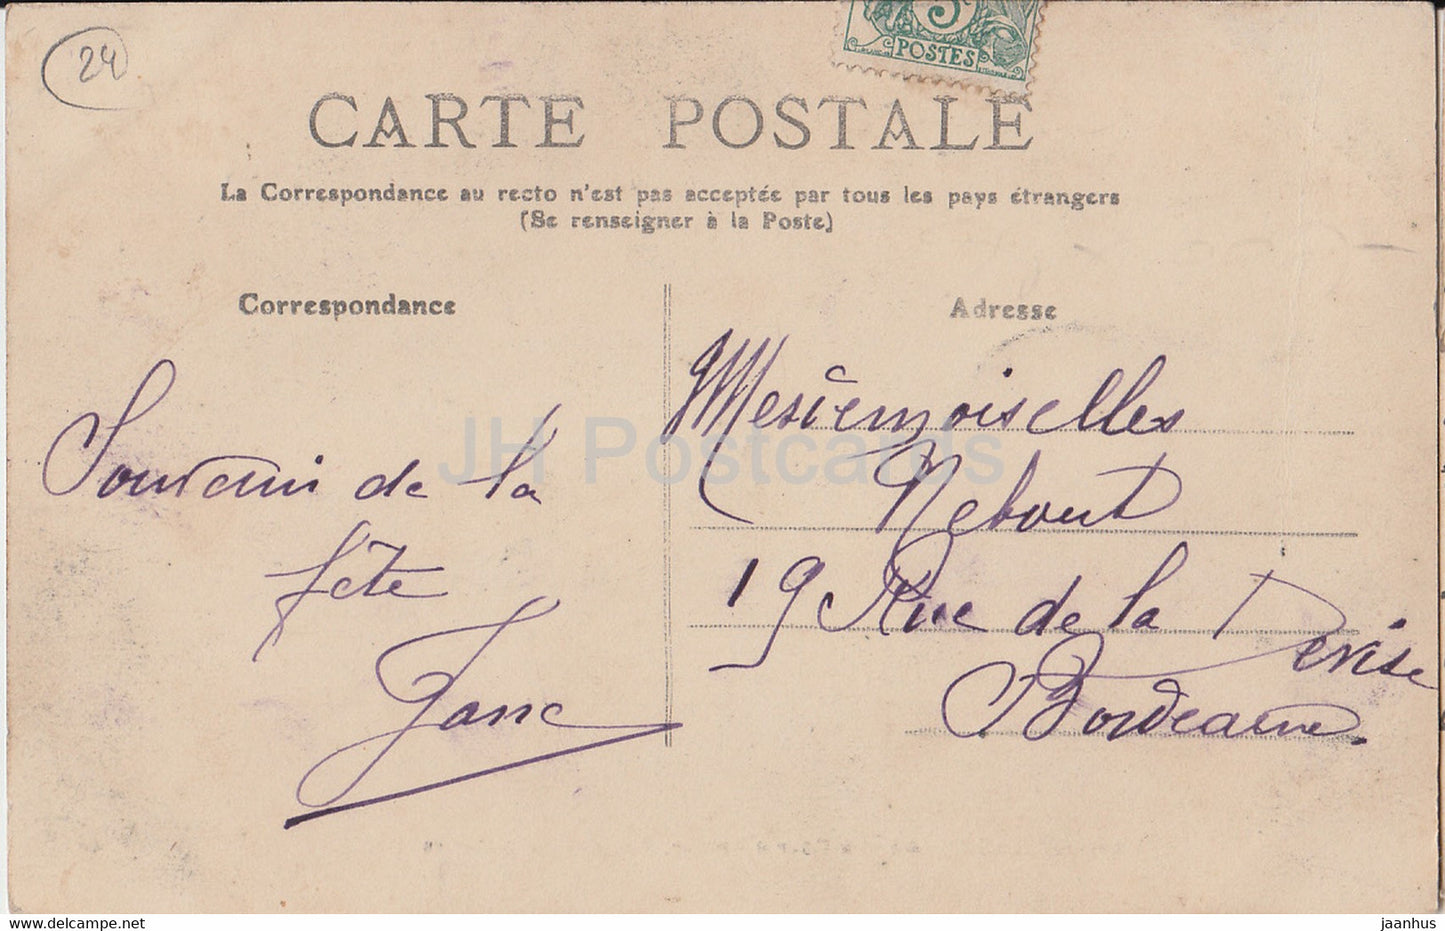 24
5
POSTES
CARTE POSTALE
La Correspondance au recto n'est pas acceptée par tous les pays étrangers
(Se renseigner à la Poste)
Correspondance
Adresse
Souvenir de la
fête
Jane
Mesdemoiselles
Nebout
19 Rue de la Devise
Bordeaux.
JH Postcards
www.delcampe.net
jaanhus